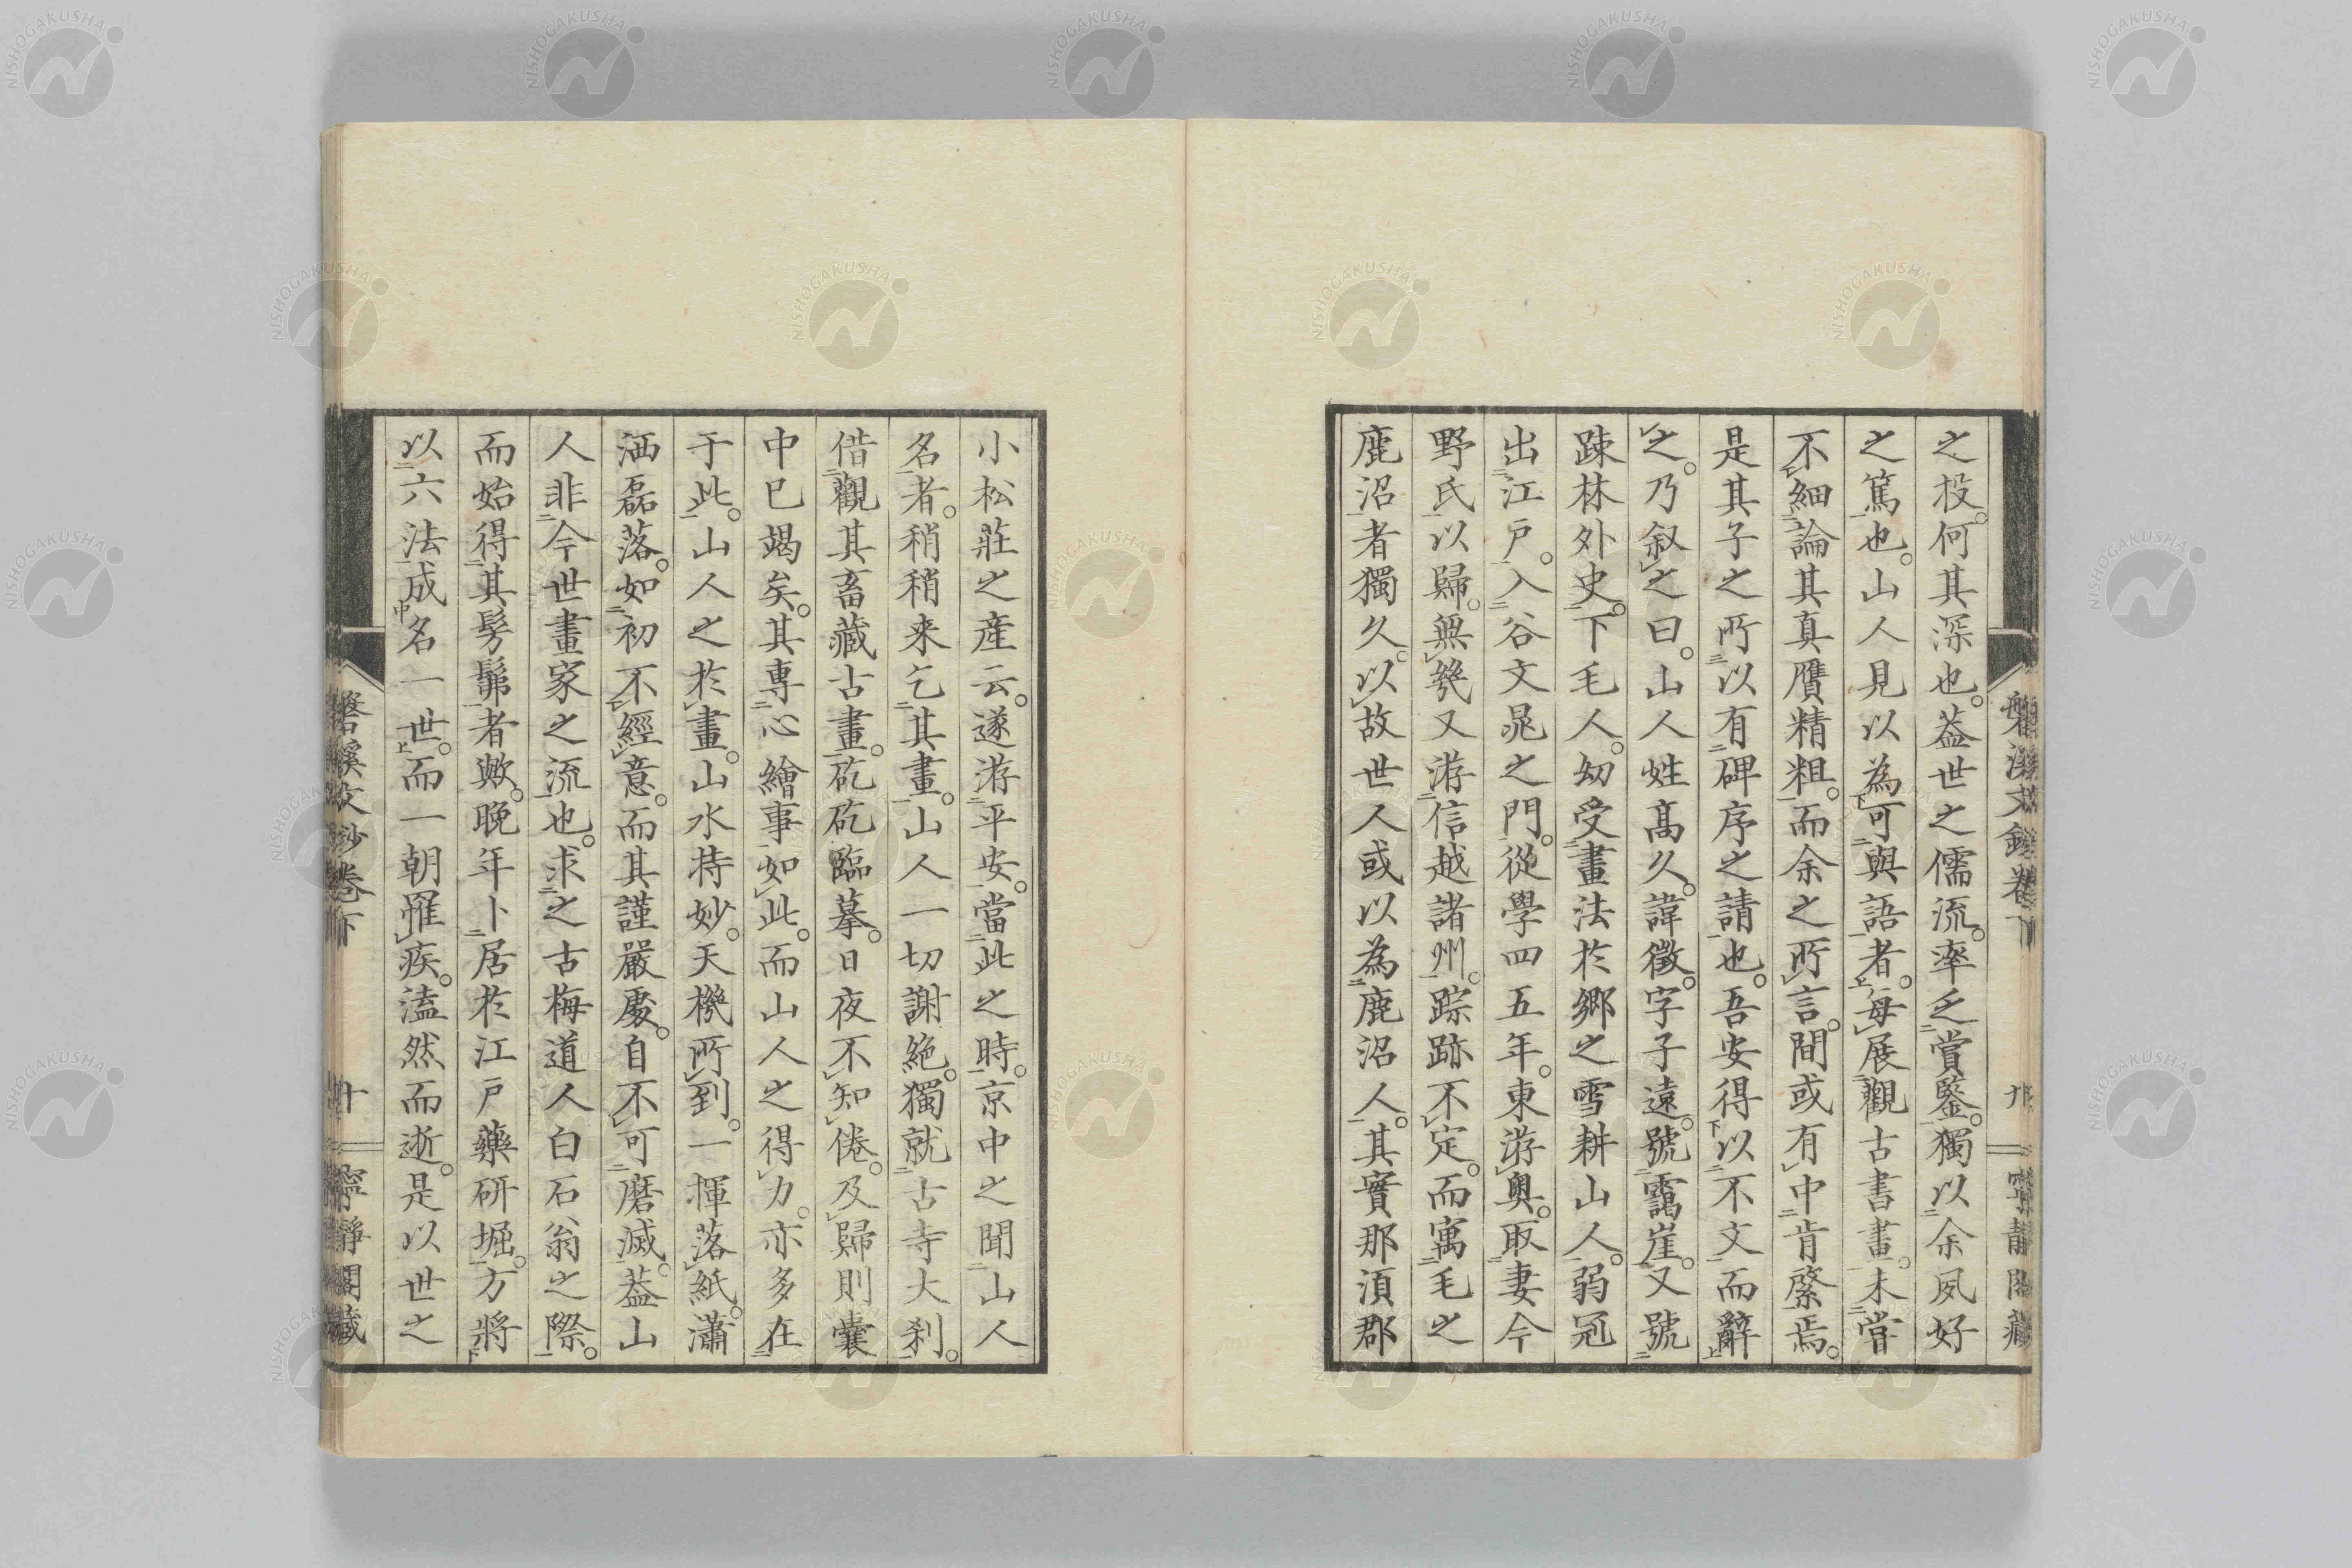 之投。何其深也。葢世之儒流。率乏賞鑒。獨以余夙好
之篤也。山人見以為可與語者。每展觀古書畫。未嘗
不細論其真贋精粗。而余之所言。間或有中肯綮焉。
是其子之所以有碑序之請也。吾安得以不文而辭
之。乃叙之曰。山人姓髙久。諱徵。字子遠。號靄崖。又號
踈林外史。下毛人。幼受畫法於郷之雪耕山人。弱冠
出江戸。入谷文晁之門。從學四五年。東游奥。取妻今
野氏以歸。無幾又游信越諸州。踪跡不定。而寓毛之
鹿沼者獨久。以故世人或以為鹿沼人。其實那湏郡
小松莊之産云。遂游平安。當此之時。京中之聞山人
名者。稍稍来乞其畫。山人一切謝絶。獨就古寺大刹。
借觀其畜藏古畫。矻矻臨摹。日夜不知倦。及歸則嚢
中已竭矣。其專心繪事如此。而山人之得力。亦多在
于此。山人之於畫。山水特妙。天機所到。一揮落紙。瀟
洒磊落。如初不經意。而其謹嚴處。自不可磨滅。葢山
人非今世畫家之流也。求之古梅道人白石翁之際。
而始得其髣髴者歟。晩年卜居於江戸藥研堀。方將
以六法成名一世。而一朝罹疾。溘然而逝。是以世之
磐溪文鈔卷下 十 寧靜閣藏